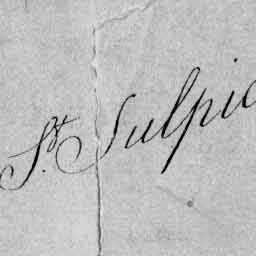 St. Sulpic